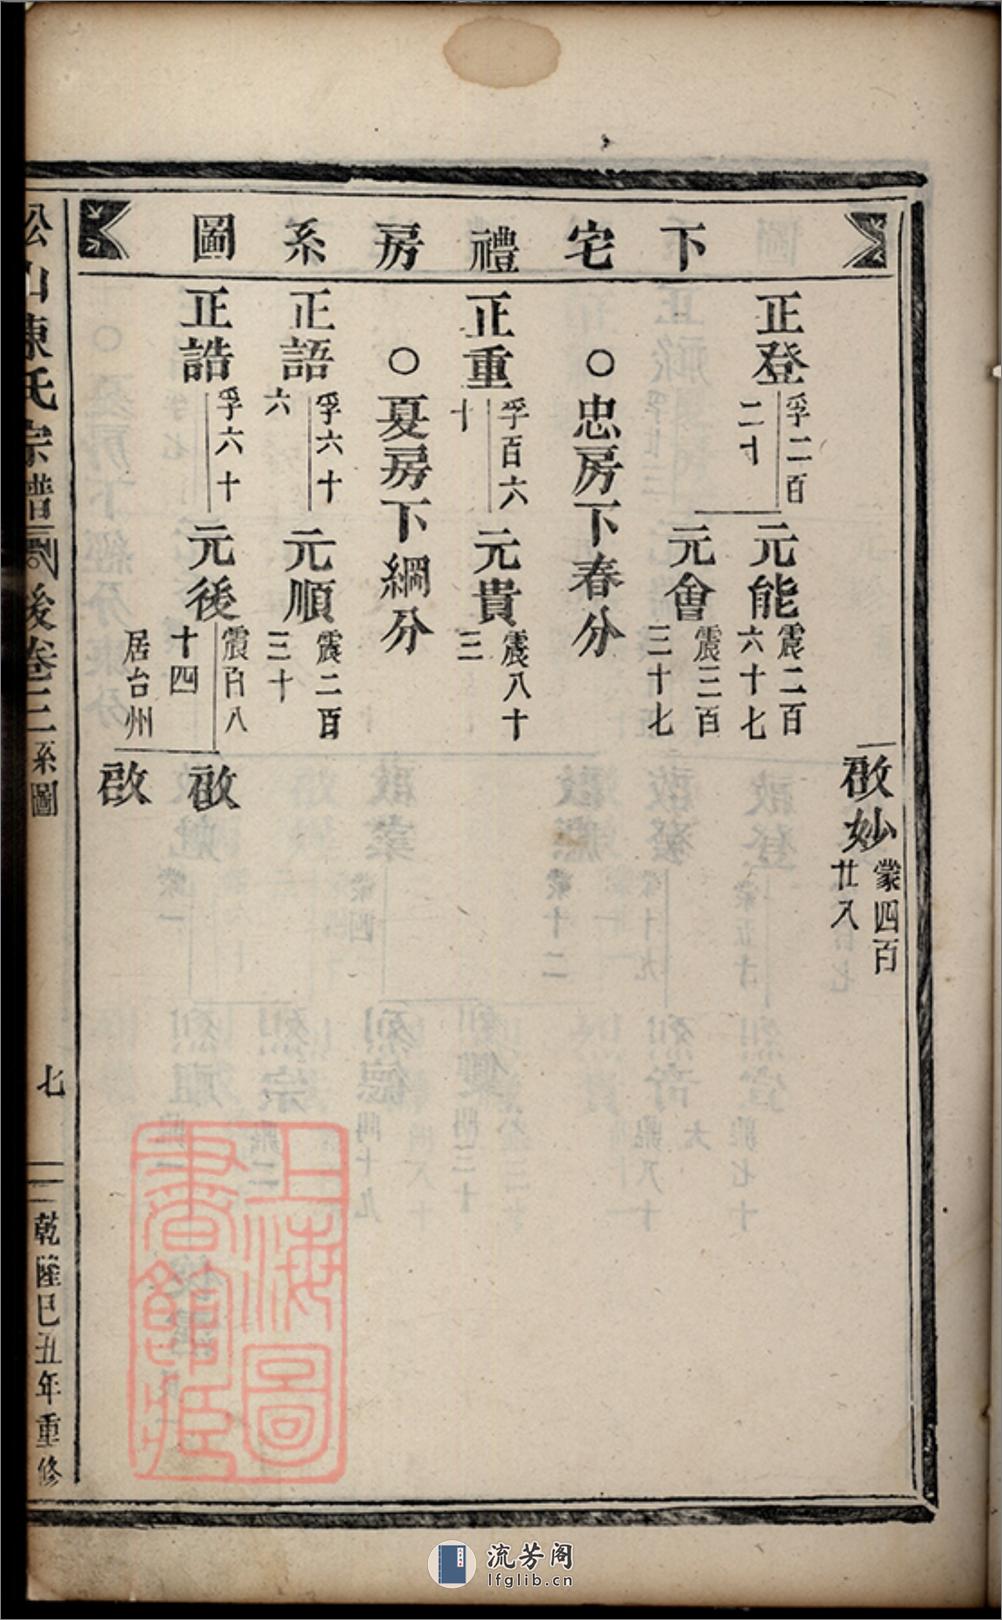 下宅禮房系圖
啟妙
蒙四百
廿八
正登
孚二百
二十
元能
震二百
六十七
元會
震三百
三十七
○忠房下春分
正重
孚百六
十
元貴
震八十
三
○夏房下綱分
正語
孚六十
六
元順
震二百
三十
正誥
孚六十
元後
震百八
十四
居台州
啟
啟
松山陳氏宗譜
後卷三
系圖
七
乾隆己丑年重修
上海圖
書館藏
流芳阁
lfglib.cn